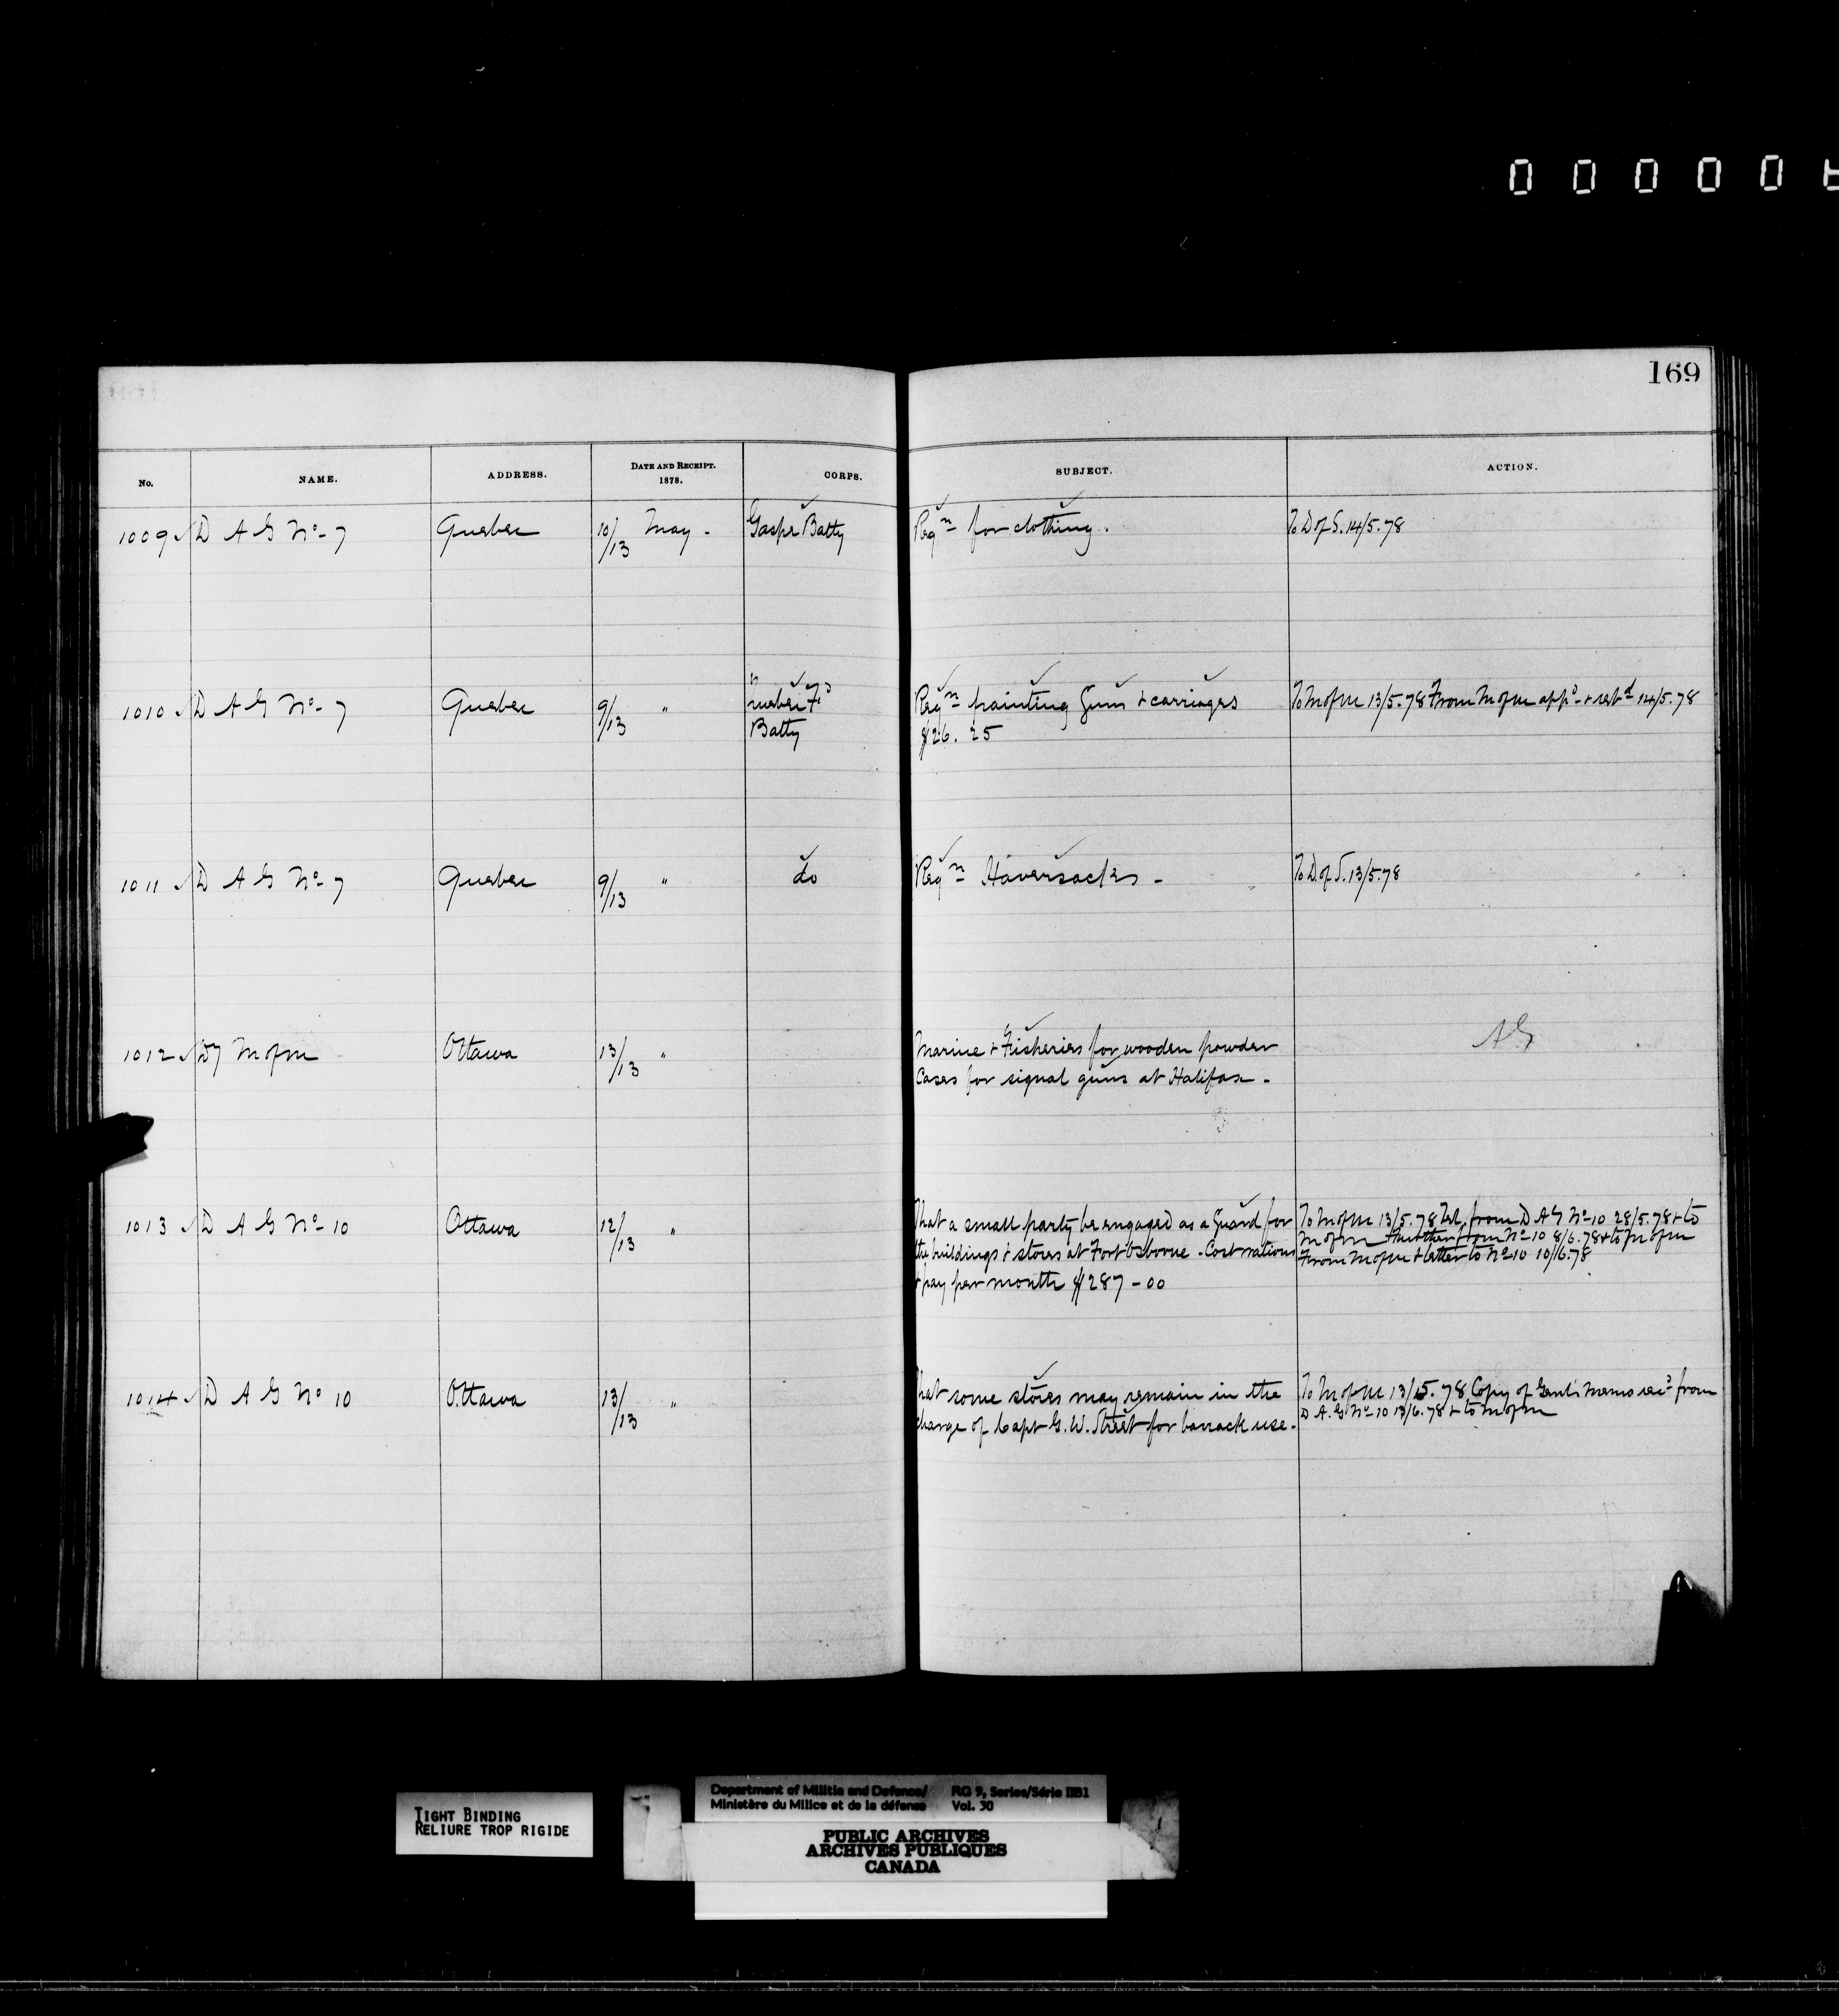 0 0 0 0 0
169
No. NAME. ADDRESS. DATE AND RECEIPT. 1878. CORPS. SUBJECT. ACTION.
1009 D A G No 7 Quebec 10/13 May - Gaspe Batty Reqn for clothing. To D of S. 14/5.78
1010 D A G No 7 Quebec 9/13 " Quebec Fd Reqn painting Guns & carriages To M of M 13/5.78 From M of M appd & retd 14/5.78
Batty $26.25
1011 D A G No 7 Quebec 9/13 " do Reqn Haversacks - To D of S. 13/5.78
1012 Dy M of M Ottawa 13/13 " Marine & Fisheries for wooden powder AG
Cases for signal guns at Halifax -
1013 D A G No 10 Ottawa 12/13 " That a small party be engaged as a Guard for To M of M 13/5.78 Tel. from D A G No 10 28/5.78 & to
the buildings & stores at Fort Osborne - Cost rations M of M Another from No 10 8/6.78 & to M of M
& pay per month $287-00 From M of M & letter to No 10 10/6.78
1014 D A G No 10 Ottawa 13/13 " That some stores may remain in the To M of M 13/5.78 Copy of Genl's Memo recd from
charge of Capt G. W. Street for barrack use - D A. G No 10 13/6.78 & to M of M
TIGHT BINDING
RELIURE TROP RIGIDE
Department of Militia and Defence/ RG 9, Series/Série IIB1
Ministère du Milice et de la défense Vol. 30
PUBLIC ARCHIVES
ARCHIVES PUBLIQUES
CANADA